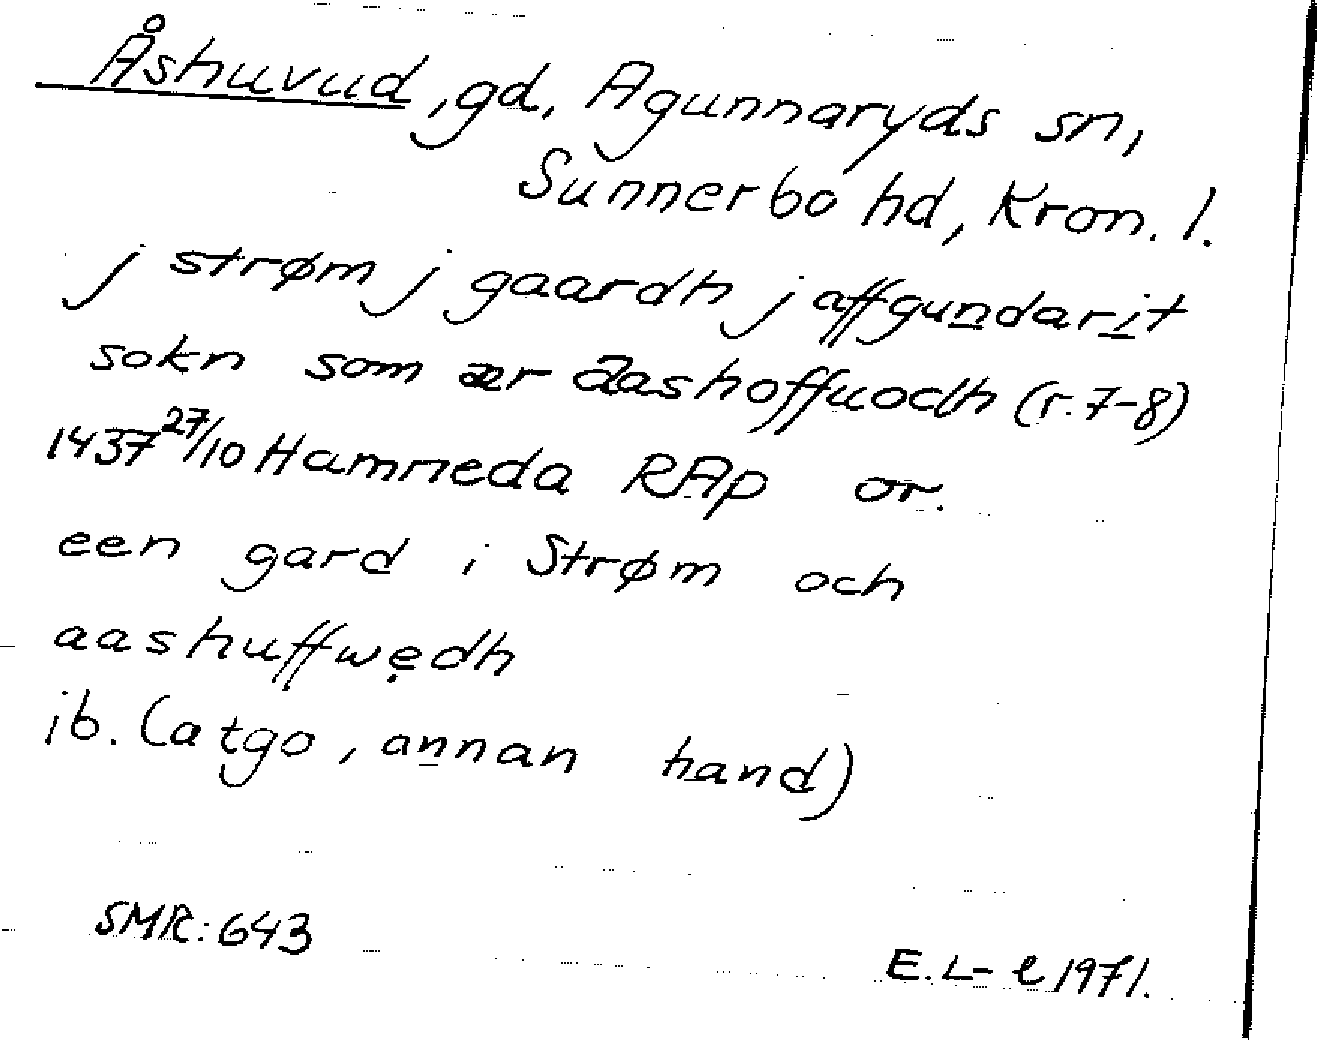 Åshuvud, gd, Agunnaryds sn,
Sunnerbo hd, Kron. l.
j strøm j gaardh j affgundarit
sokn som ær aashoffuodh (r. 7-8)
1437 27/10 Hamneda RAp or.
een gard i Strøm och
aashuffwẹdh
ib. (atgo, annan hand)
SMR: 643
E. L-l 1971.